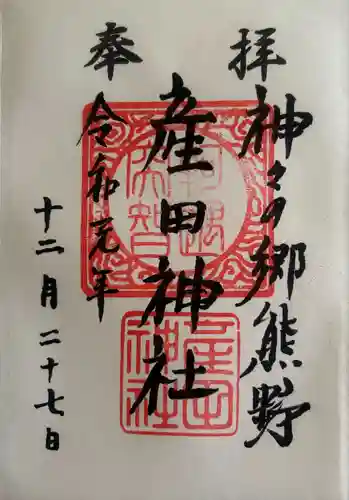 奉拝
神々の郷熊野
産田神社
令和元年
十二月二十七日
産田神社